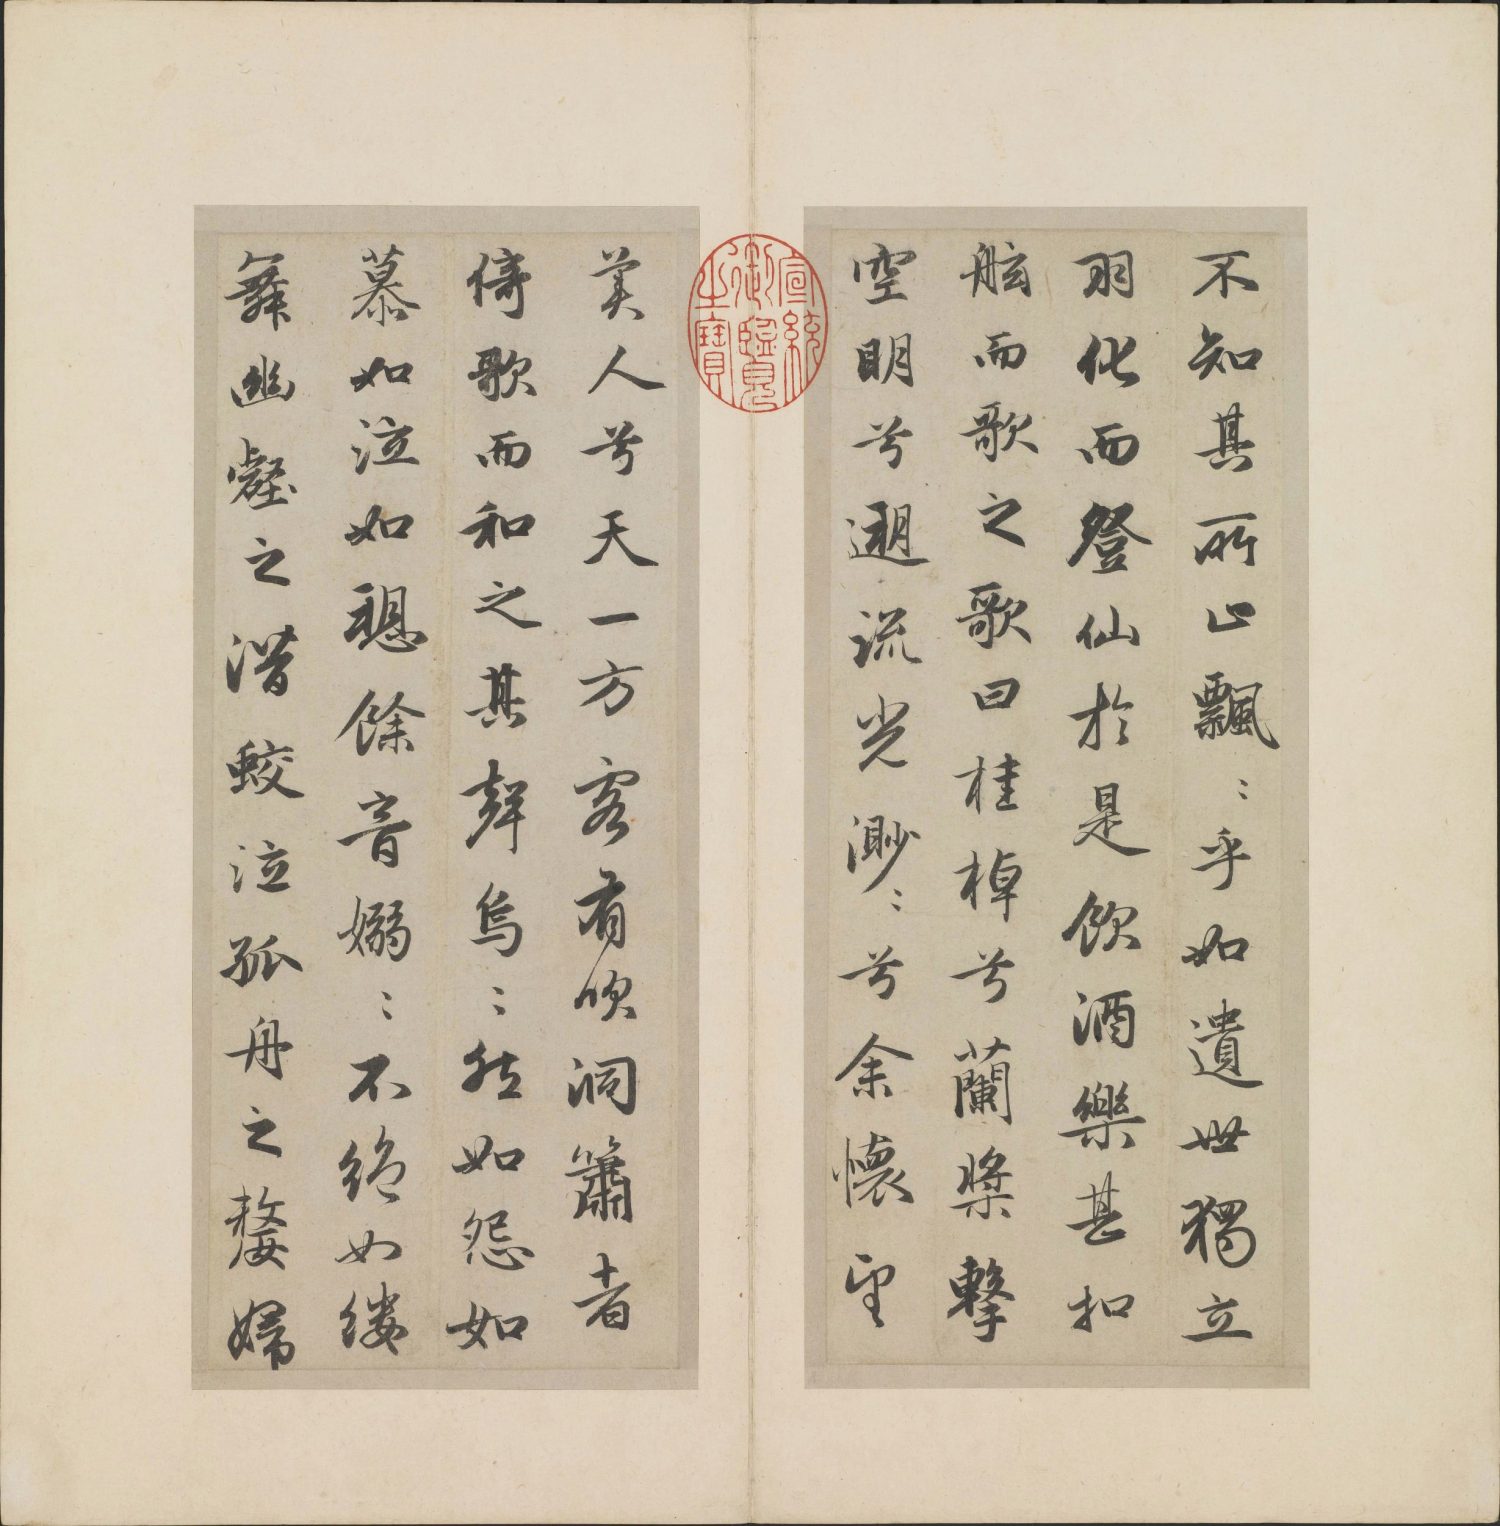 不知其所止飄〻乎如遺世獨立
羽化而登仙於是飲酒樂甚扣
舷而歌之歌曰桂棹兮蘭槳擊
空明兮遡流光渺〻兮余懷望
美人兮天一方客有吹洞簫者
倚歌而和之其聲烏〻然如怨如
慕如泣如愬餘音嫋〻不絕如縷
舞幽壑之潛蛟泣孤舟之嫠婦
宣統
御覽
之寶